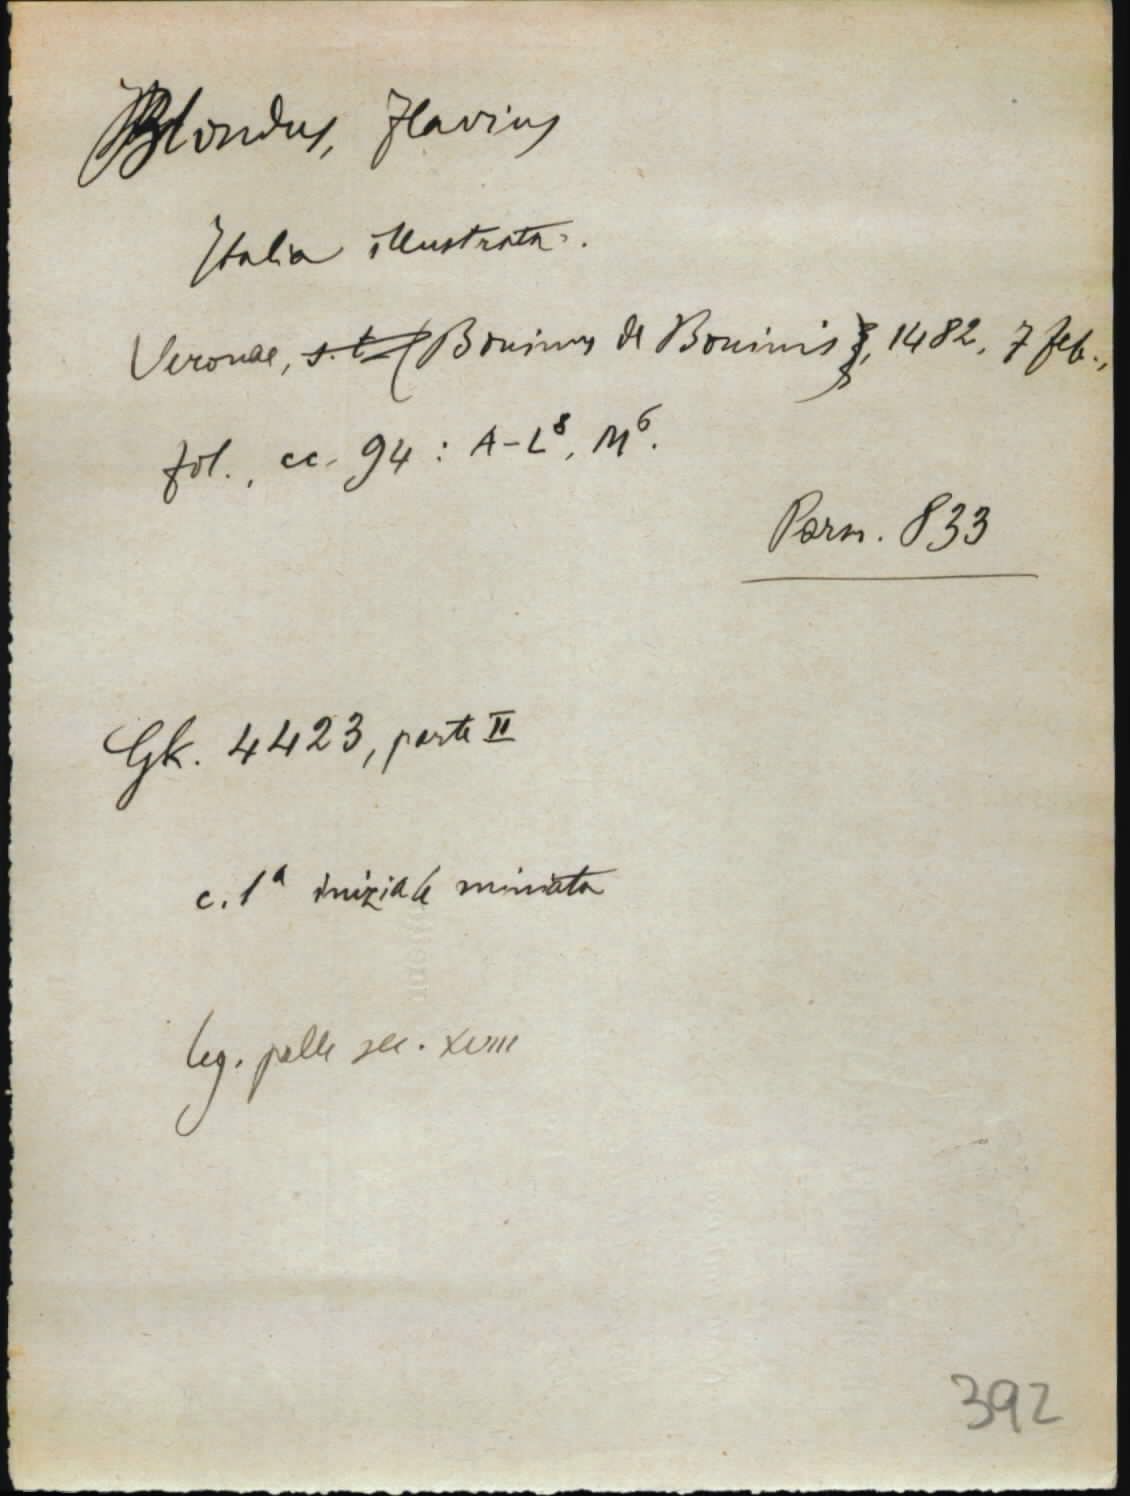 Blondus, Flavius
Italia illustrata.
Veronae, s.t. (Boninus de Boninis), 1482, 7 feb.,
fol., cc. 94 : A-L⁸, M⁶.
Parm. 833
Gk. 4423, parte II
c. 1ª iniziale miniata
leg. pelle sec. XVIII
392